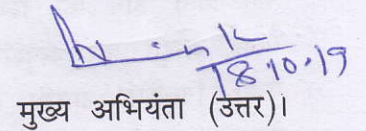 18.10.19
मुख्य अभियंता (उत्तर)।